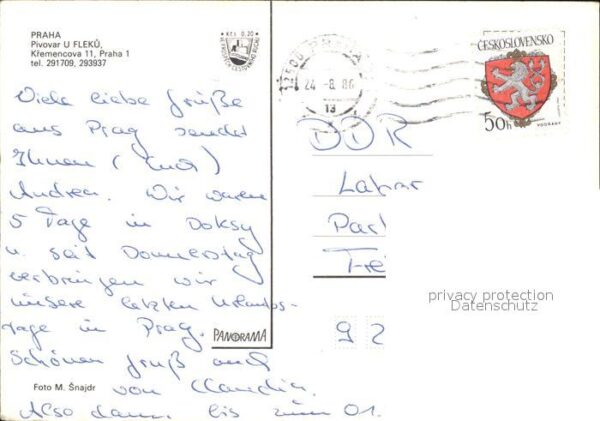 PRAHA
Pivovar U FLEKŮ,
Křemencova 11, Praha 1
tel. 291709, 293937
KČS 0,20
Viele liebe Grüße
aus Prag sendet
Ihnen (Euch)
Andrea. Wir waren
5 Tage in Doksy
u. seit Donnerstag
verbringen wir
unsere letzten Urlaubs-
tage in Prag.
Schönen Gruß auch
von Claudia.
Also dann, bis zum 01.
Foto M. Šnajdr
PANORAMA
24 -8. 86
13
ČESKOSLOVENSKO
50h
VODŇANY
DDR
privacy protection
Datenschutz
92